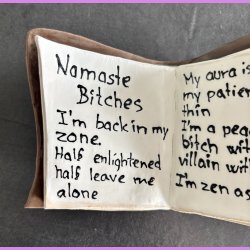 Namaste
Bitches
I'm back in my
zone.
Half enlightened
half leave me
alone
My aura is
my patien
thin
I'm a pea
bitch with
villain with
I'm zen as